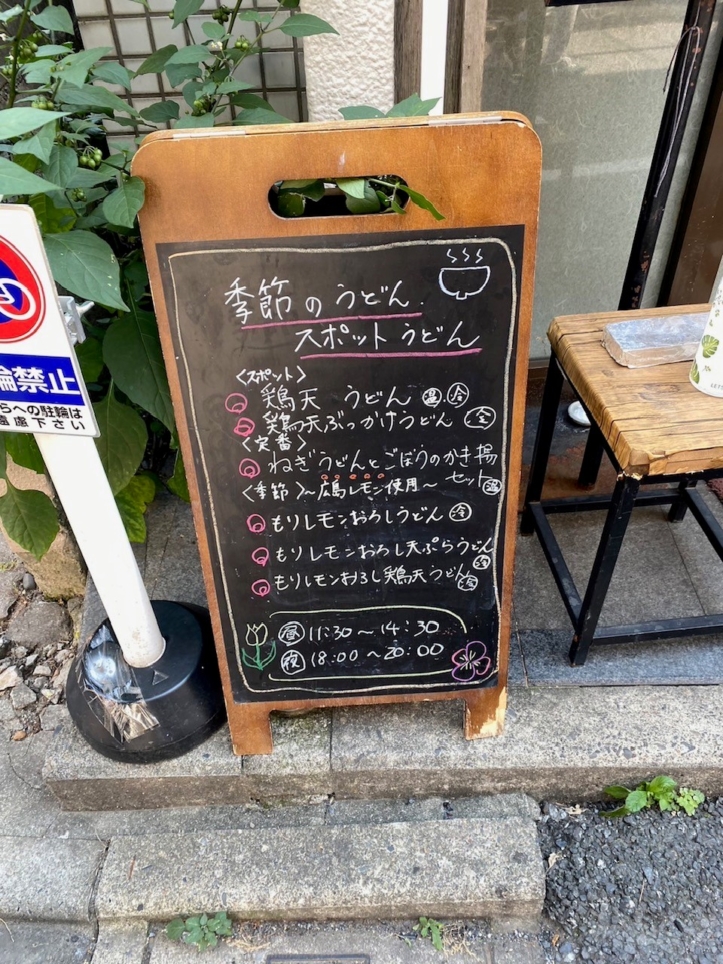 季節のうどん
スポットうどん
<スポット>
鶏天 うどん 温 冷
鶏天ぶっかけうどん 冷
<定番>
ねぎうどんとごぼうのかき揚
セット 温
<季節>～広島レモン使用～
もりレモンおろしうどん 冷
もりレモンおろし天ぷらうどん 冷
もりレモンおろし鶏天うどん 冷
昼 11:30～14:30
夜 18:00～20:00
輪禁止
らへの駐輪は
遠慮下さい